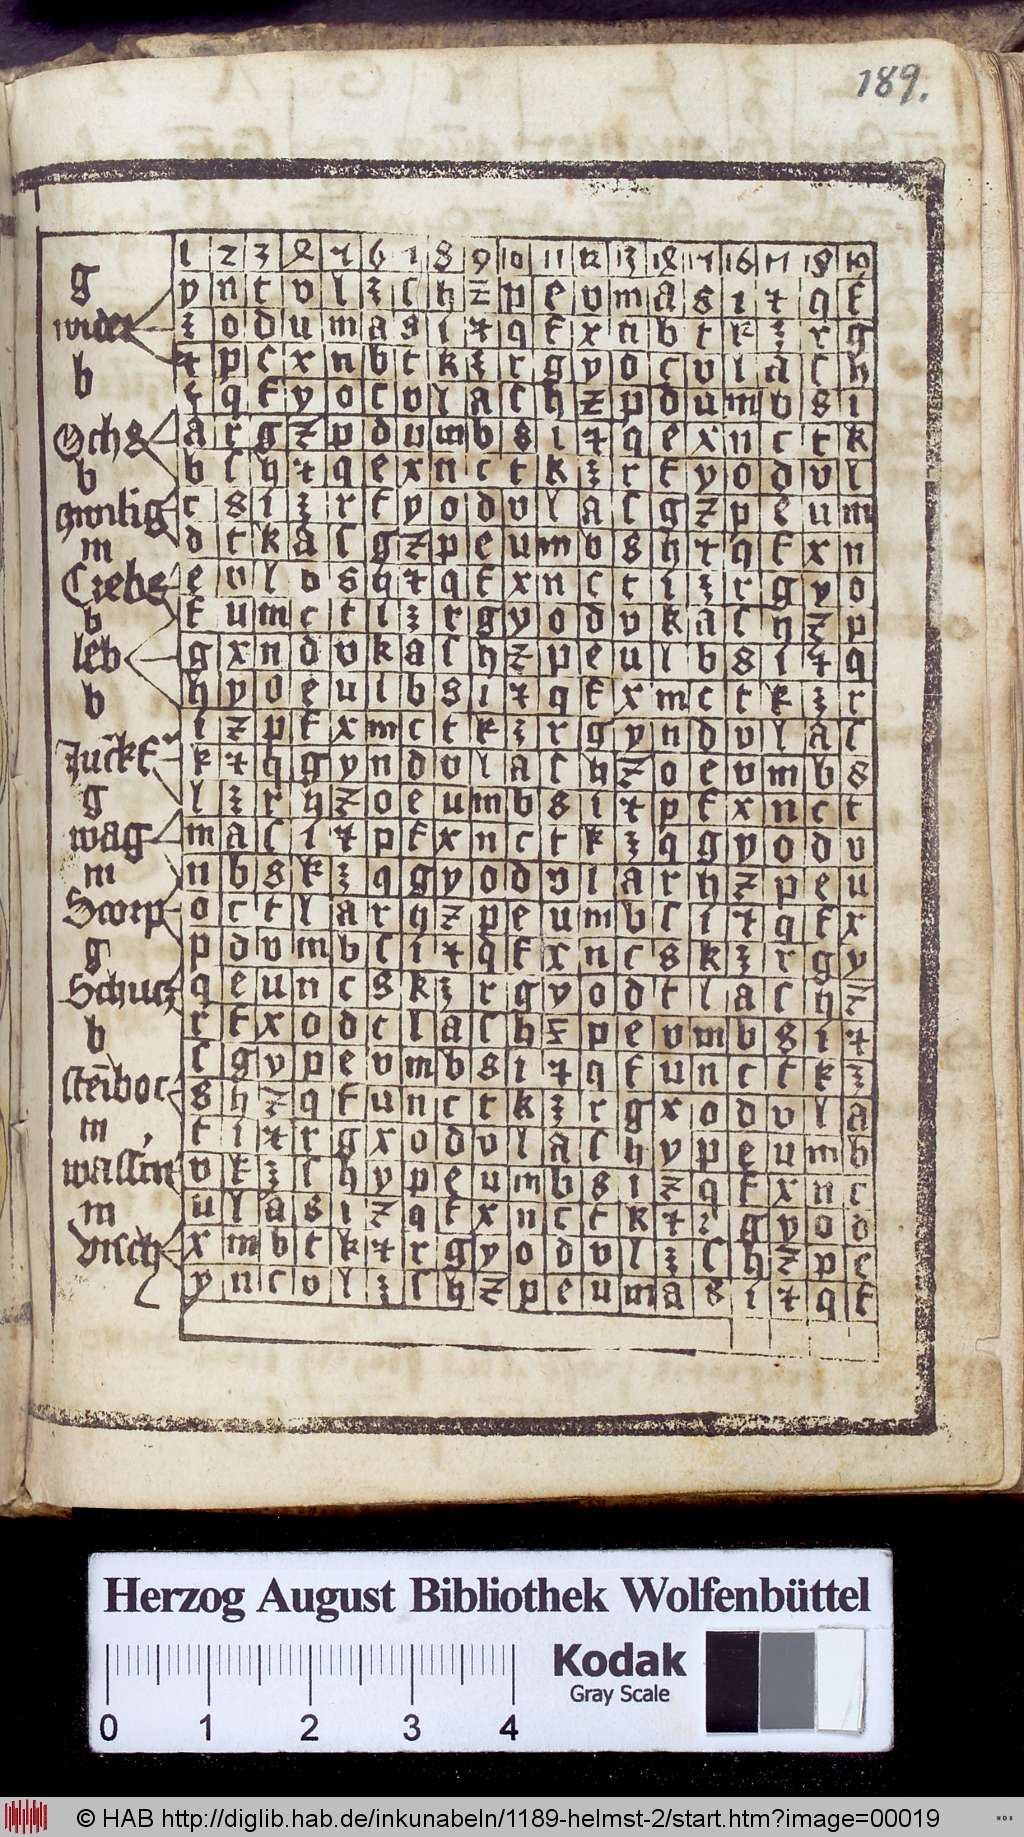 189.
1 2 3 4 5 6 7 8 9 10 11 12 13 14 15 16 17 18 19
g
wider
b
Ochs
b
zwilig
m
Crebs
b
leb
b
Juckf
g
wag
m
Scorp
g
Schucz
b
steiboc
m
wassm
m
visch
y n c v l z c h z p e v m a s i t q f
z o d u m a s i t q f x n b t k z r g
t p c x n b t k z r g y o c v l a c h
z q f y o c v l a c h z p d u m b s i
a r g z p d v m b s i t q e x n c t k
b l h t q e x n c t k z r f y o d v l
c s i z r f y o d v l a l g z p e u m
d t k a l g z p e u m b s h t q f x n
e v l b s h t q f x n c t i z r g y o
f u m c t l z r g y o d v k a l h z p
g x n d v k a l h z p e u l b s i t q
h y o e u l b s i t q f x m c t k z r
i z p f x m c t k z r g y n d v l a l
k t h g y n d v l a l h z o e v m b s
l z r h z o e u m b s i t p f x n c t
m a l i t p f x n c t k z q g y o d v
n b s k z q g y o d v l a r h z p e u
o c t l a r h z p e u m b l i t q f x
p d v m b l i t q f x n c s k z r g y
q e u n c s k z r g y o d t l a l h z
r f x o d t l a l h z p e v m b s i t
l g y p e v m b s i t q f u n c t k z
s h z q f u n c t k z r g x o d v l a
t i t r g x o d v l a l h y p e u m b
v k z l h y p e u m b s i z q f x n c
u l a s i z q f x n c t k t r g y o d
x m b t k t r g y o d v l z l h z p e
y n c v l z l h z p e u m a s i t q f
Herzog August Bibliothek Wolfenbüttel
0 1 2 3 4
Kodak
Gray Scale
© HAB http://diglib.hab.de/inkunabeln/1189-helmst-2/start.htm?image=00019